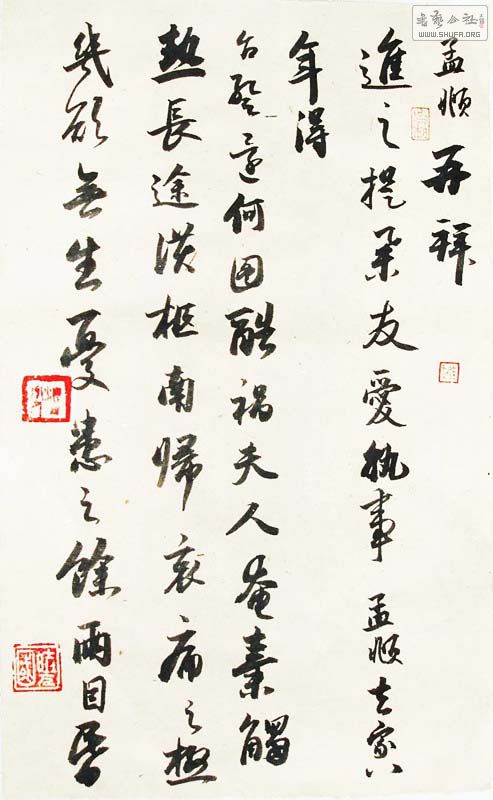 孟頫再拜
進之提舉友愛執事孟頫去家八
年得
旨暫還何圖酷禍夫人奄棄觸
熱長途護柩南歸哀痛之極
幾欲無生憂患之餘兩目昏
書藝公社
WWW.SHUFA.ORG